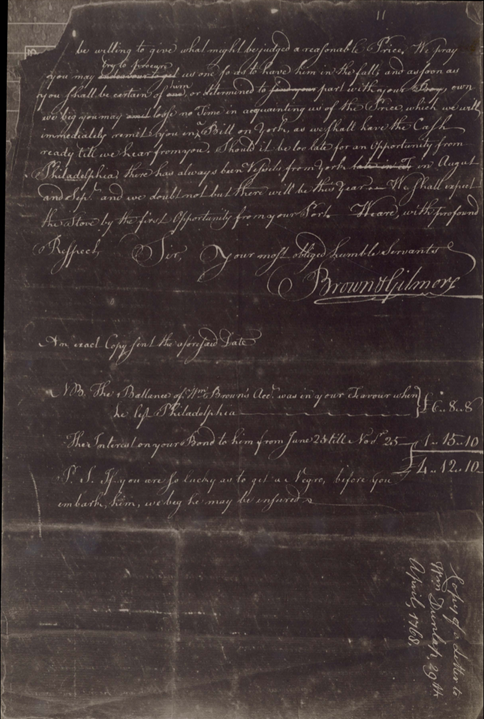 11
be willing to give what might be judged a reasonable Price, We pray
you may try to procure us one so as to have him in the fall, and as soon as
you shall be certain of him, or determined to part with your Boy, own
we beg you may loose no Time in acquainting us of the Price, which we will
immediately remit you in a Bill on York, as we shall have the Cash
ready till we hear from you. Should it be too late for an Opportunity from
Philadelphia, there has always been Vessels from York in August
and Sepr. and we doubt not but there will be this Year — We shall expect
the Slave by the first Opportunity from your Port. We are, with profound
Respect, Sir, Your most obliged humble Servants
Brown & Gilmore
An exact Copy sent the aforesaid Date
NB. The Ballance of Wm. Brown's Acct. was in your Favour when
he left Philadelphia £6..8..8
The Interest on your Bond to him from June 25 till Novr. 25 1..15..10
4..12..10
P.S. If you are so lucky as to get a Negro, before you
embark him, we beg he may be insured
Copy of a Letter to
Wm Dunlap, 29th
April, 1768